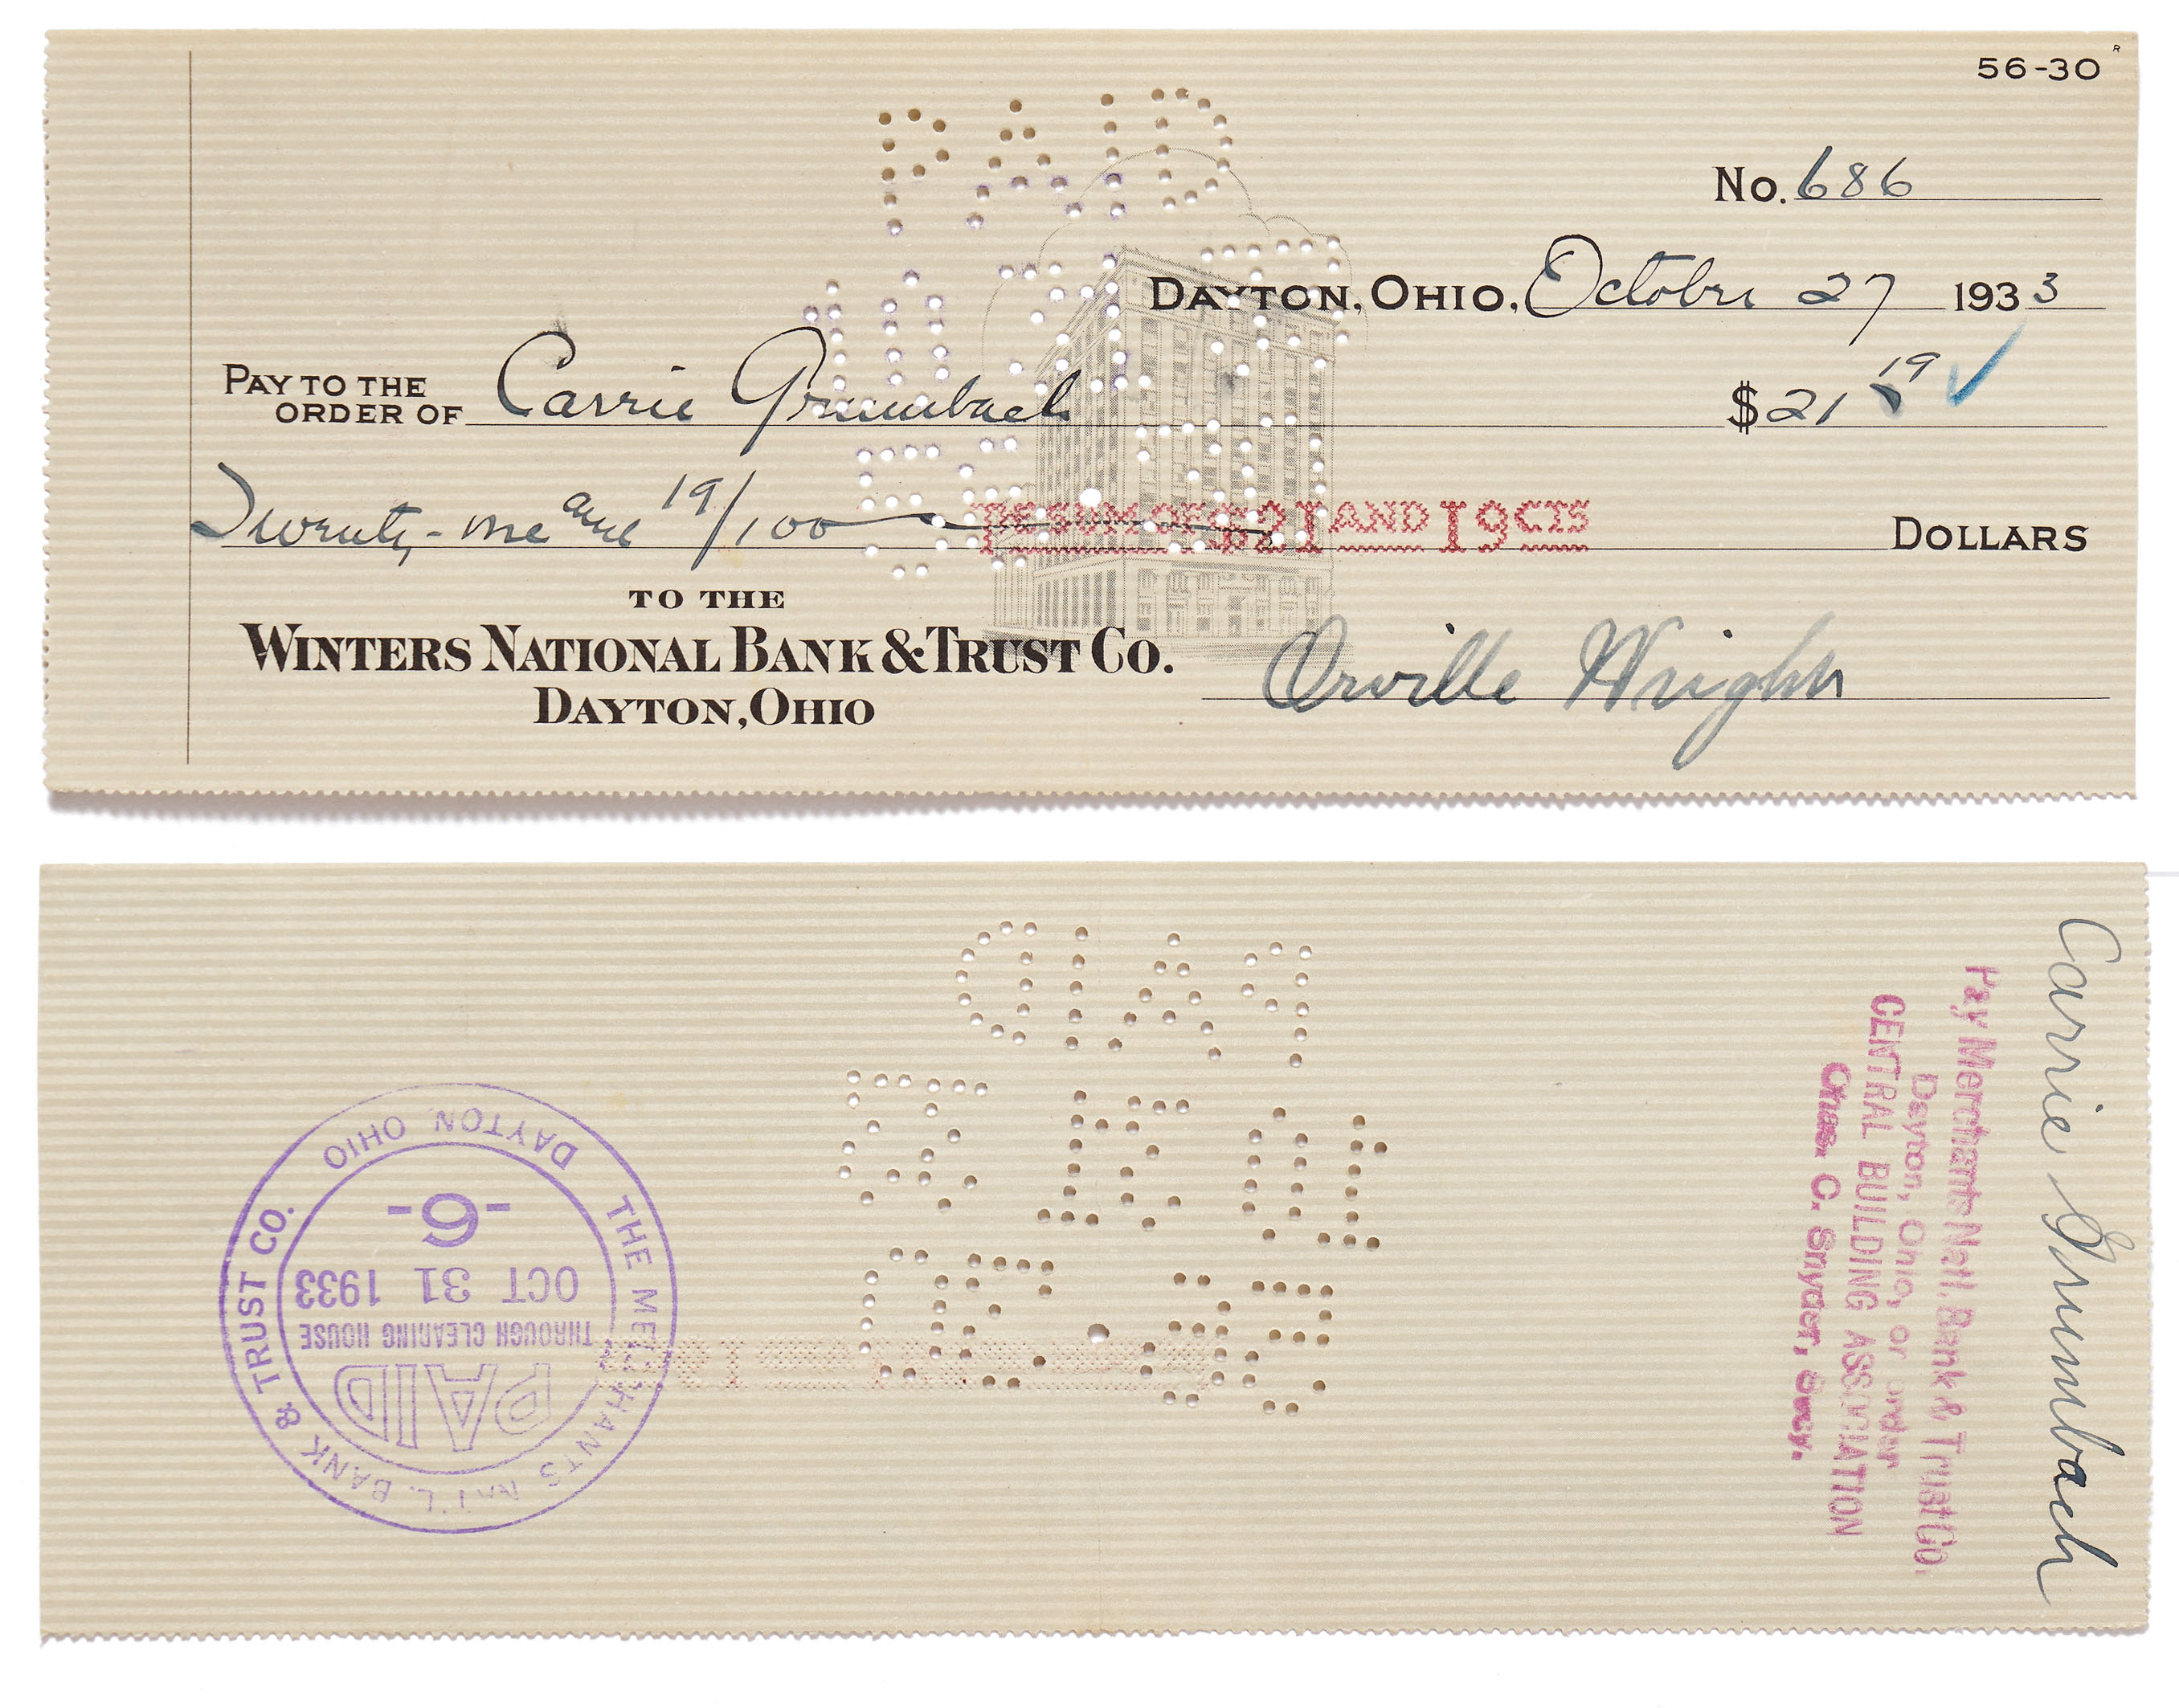 56-30
R
No. 686
DAYTON, OHIO, October 27 1933
PAY TO THE ORDER OF Carrie Grumbach $21 19
Twenty-one and 19/100 THE SUM OF $21 AND 19 CTS DOLLARS
TO THE
WINTERS NATIONAL BANK & TRUST CO.
DAYTON, OHIO
Orville Wright
PAID
10 31 33
Carrie Grumbach
Pay Merchants Natl. Bank & Trust Co.
Dayton, Ohio, or order
CENTRAL BUILDING ASSOCIATION
Chas. C. Snyder, Secy.
THE MERCHANTS NAT'L. BANK & TRUST CO.
DAYTON OHIO
PAID
THROUGH CLEARING HOUSE
OCT 31 1933
-6-